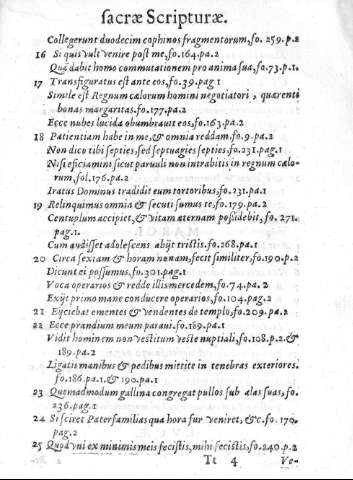 sacræ Scripturæ.
Collegerunt duodecim cophinos fragmentorum, fo. 259. p.2
16 Si quis vult venire post me, fo. 164. pa.2
Quā dabit homo commutationem pro anima sua, fo. 73. p.1.
17 Transfiguratus est ante eos, fo. 39. pag 1
Simile est Regnum cælorum homini negotiatori, quærenti
bonas margaritas. fo. 177. pa.2
Ecce nubes lucida obumbravit eos, fo. 163. pa.2
18 Patientiam habe in me, & omnia reddam, fo. 9. pa.2
Non dico tibi septies, sed septuagies septies, fo. 231. pag.1
Nisi efficiamini sicut paruuli non intrabitis in regnum cælo-
rum, fol. 176. pa.2
Iratus Dominus tradidit eum tortoribus, fo. 231. pa.1
19 Relinquimus omnia & secuti sumus te, fo. 179. pa.2
Centuplum accipiet, & vitam æternam possidebit, fo. 271.
pag.1.
Cum audisset adolescens abijt tristis. fo. 268. pa.1
20 Circa sextam & horam nonam, fecit similiter, fo. 190. p.2
Dicunt ei possumus, fo. 301. pag.1
Voca operarios & redde illis mercedem, fo. 74. pa.2
Exijt primo mane conducere operarios, fo. 104. pag.2
21 Eyciebat ementes & vendentes de templo, fo. 209. pa.2
22 Ecce prandium meum paraui. fo. 189. pa.1
Vidit hominem non vestitum veste nuptiali, fo. 108. p.2. &
189. pa.2
Ligatis manibus & pedibus mittite in tenebras exteriores.
fo. 186. pa.1. & 190. pa.1
23 Quemadmodum gallina congregat pullos sub alas suas, fo.
236. pag.1
24 Si sciret Paterfamilias qua hora fur veniret, &c. fo. 170.
pag.2
25 Quod vni ex minimis meis fecistis, mihi fecistis, fo. 240. p.2
Tt 4 Ve-